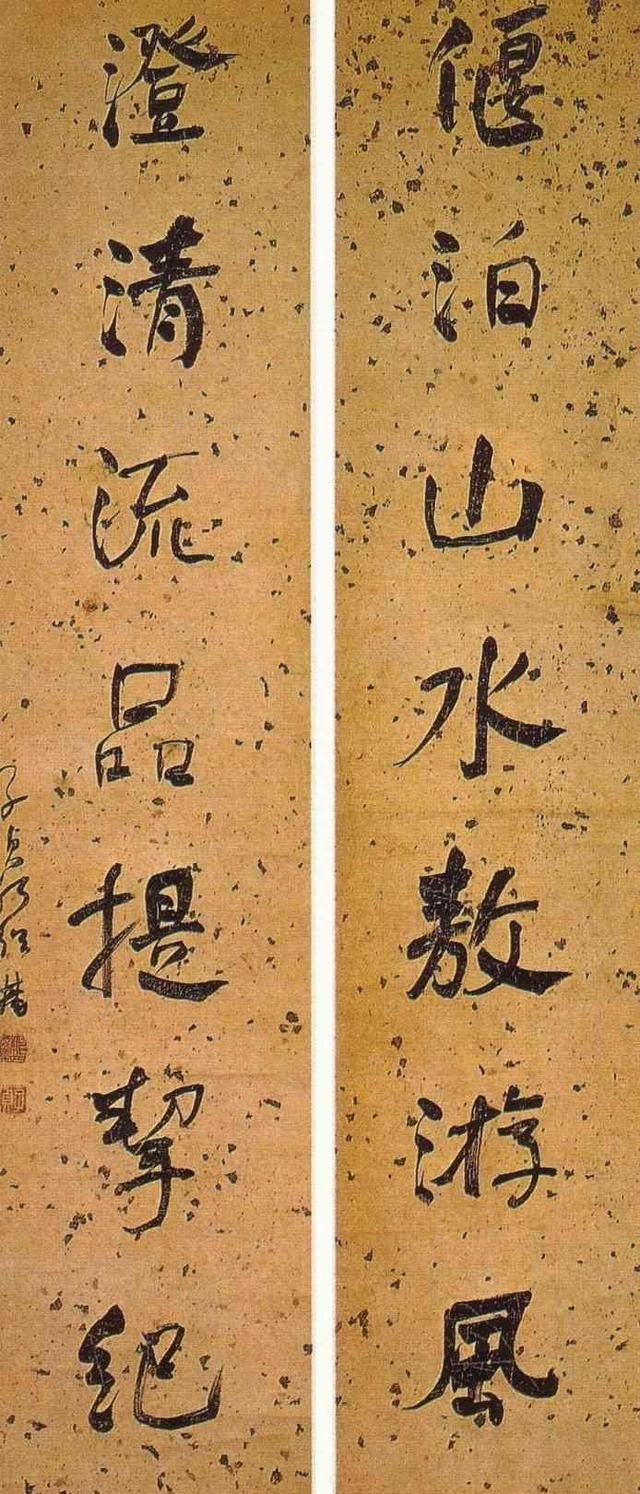 偃泊山水敖游風
澄清流品提挈紀
子貞何紹基